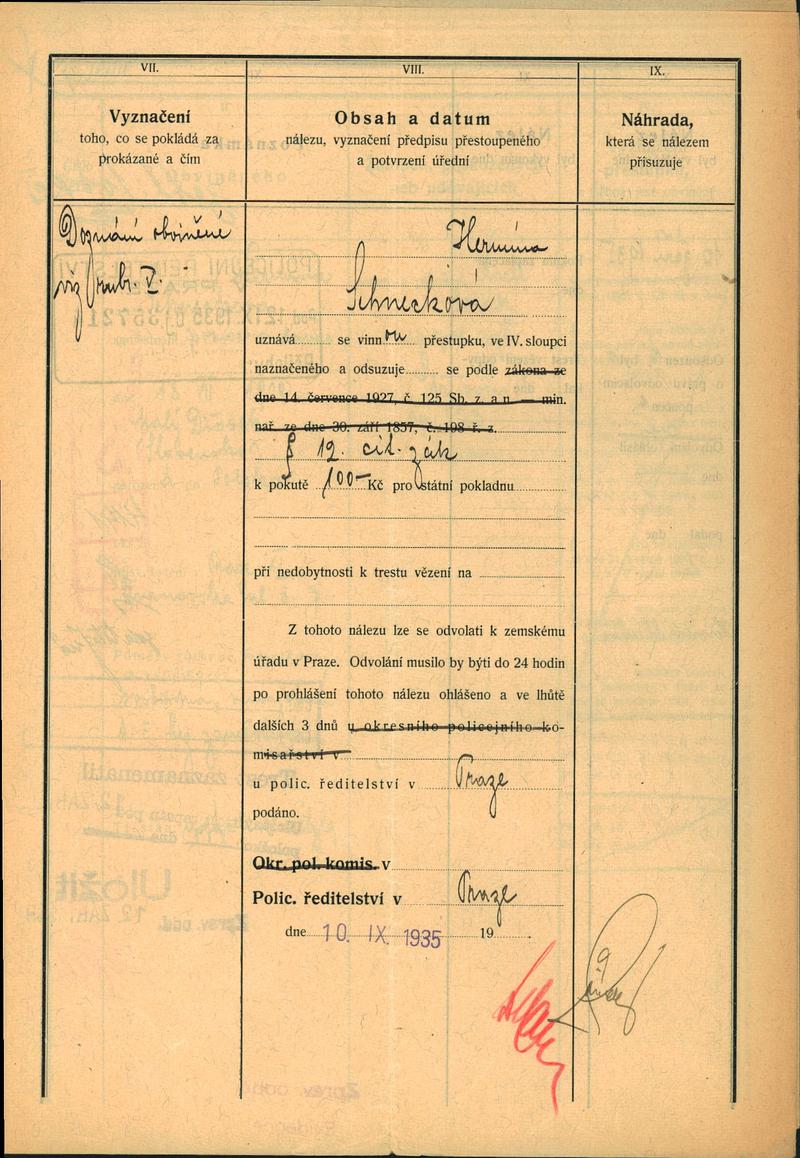 VII.
Vyznačení
toho, co se pokládá za
prokázané a čím
Doznání obviněné
viz rubr. V.
VIII.
Obsah a datum
nálezu, vyznačení předpisu přestoupeného
a potvrzení úřední
Hermína
Schnecková
uznává se vinnou přestupku, ve IV. sloupci
naznačeného a odsuzuje se podle zákona ze
dne 14. července 1927, č. 125 Sb. z. a n. — min.
nař. ze dne 30. září 1857, č. 198 ř. z.
§ 12. cit. zák
k pokutě 100- Kč pro státní pokladnu
při nedobytnosti k trestu vězení na
Z tohoto nálezu lze se odvolati k zemskému
úřadu v Praze. Odvolání musilo by býti do 24 hodin
po prohlášení tohoto nálezu ohlášeno a ve lhůtě
dalších 3 dnů u okresního policejního ko-
misařství v
u polic. ředitelství v Praze
podáno.
Okr. pol. komis. v
Polic. ředitelství v Praze
dne 10. IX. 1935 19
IX.
Náhrada,
která se nálezem
přisuzuje